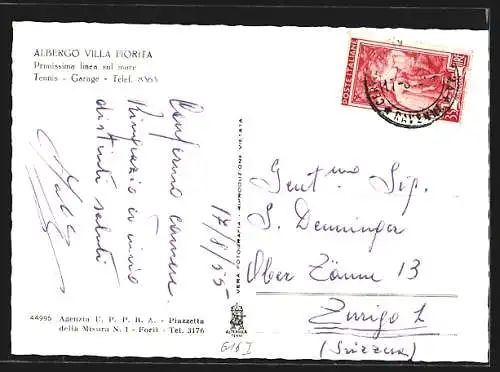 ALBERGO VILLA FIORITA
Primissima linea sul mare
Tennis - Garage - Telef. 8363
17/8/55
Confermo camere
Ringrazio e invio
distinti saluti
44995 Agenzia U. P. P. R. A. - Piazzetta
della Misura N. 1 - Forlì - Tel. 3176
VERA FOTOGRAFIA - RIPRODUZIONE VIETATA
POSTE ITALIANE
Gent.ma Sig.
S. Denninger
Ober Zäune 13
Zurigo 1
(Svizzera)